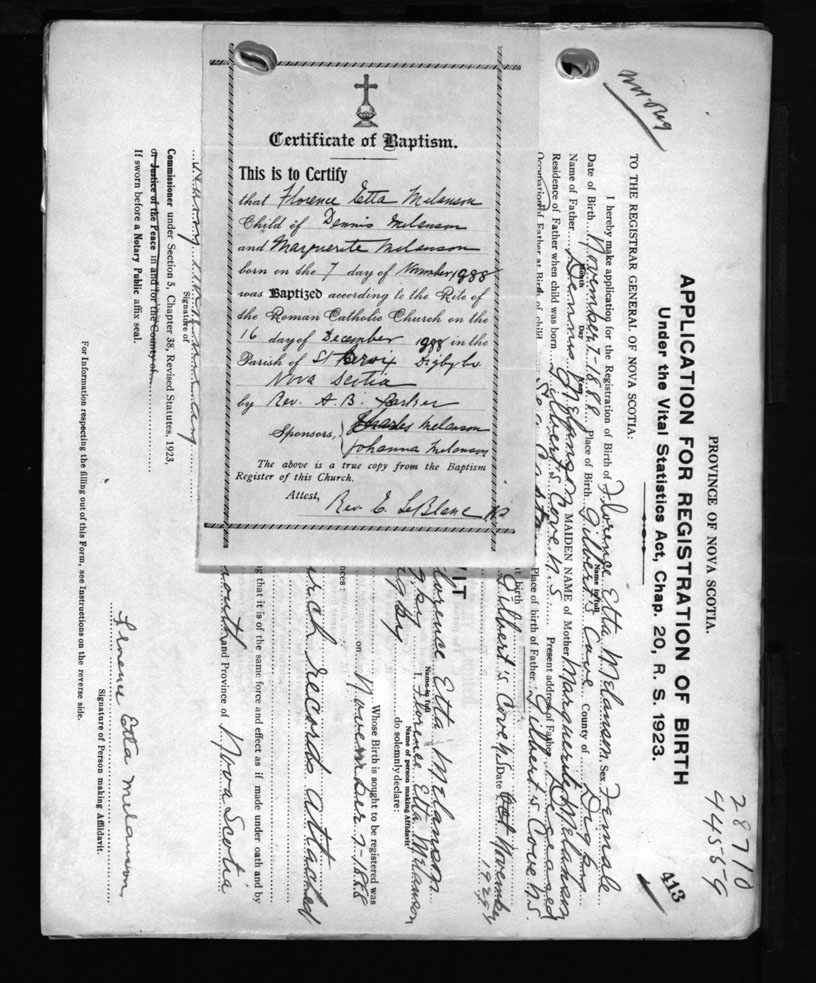 Certificate of Baptism.
This is to Certify
that Florence Etta Melanson
Child of Dennis Melanson
and Marguerite Melanson
born on the 7 day of November 1988
was Baptized according to the Rite of
the Roman Catholic Church on the
16 day of December 1988 in the
Parish of St Croix Digby Co
Nova Scotia
by Rev. A. B. Parker
Sponsors, Charles Melanson
Johanna Melanson
The above is a true copy from the Baptism
Register of this Church.
Attest, Rev. E. LeBlanc
28710
44559
413
PROVINCE OF NOVA SCOTIA.
APPLICATION FOR REGISTRATION OF BIRTH
Under the Vital Statistics Act, Chap. 20, R. S. 1923.
TO THE REGISTRAR GENERAL OF NOVA SCOTIA.
I hereby make application for the Registration of Birth of Florence Etta Melanson, Sex Female
Name in full
Date of Birth November 7-1888 Place of Birth Gilbert's Cove County of Digby
Month Day
Name of Father Dennis Melanson MAIDEN NAME of Mother Marguerite Melanson
Residence of Father when child was born Gilbert's Cove N.S Present address of Father Deceased
Occupation of Father at Birth of child Sea Captain Place of birth of Father Gilbert's Cove N.S.
at birth Gilbert's Cove N.S Date Oct November
1929
VIT
Florence Etta Melanson
Name in full
I, Florence Etta Melanson
Name of person making Affidavit
do solemnly declare:
Digby
Whose Birth is sought to be registered was
on November 7-1888
nces:
church records attached
ng that it is of the same force and effect as if made under oath and by
mouth and Province of Nova Scotia
Signature of
Commissioner under Section 5, Chapter 38, Revised Statutes, 1923,
or Justice of the Peace in and for the County of
If sworn before a Notary Public affix seal.
Florence Etta Melanson
Signature of Person making Affidavit.
For Information respecting the filling out of this Form, see Instructions on the reverse side.